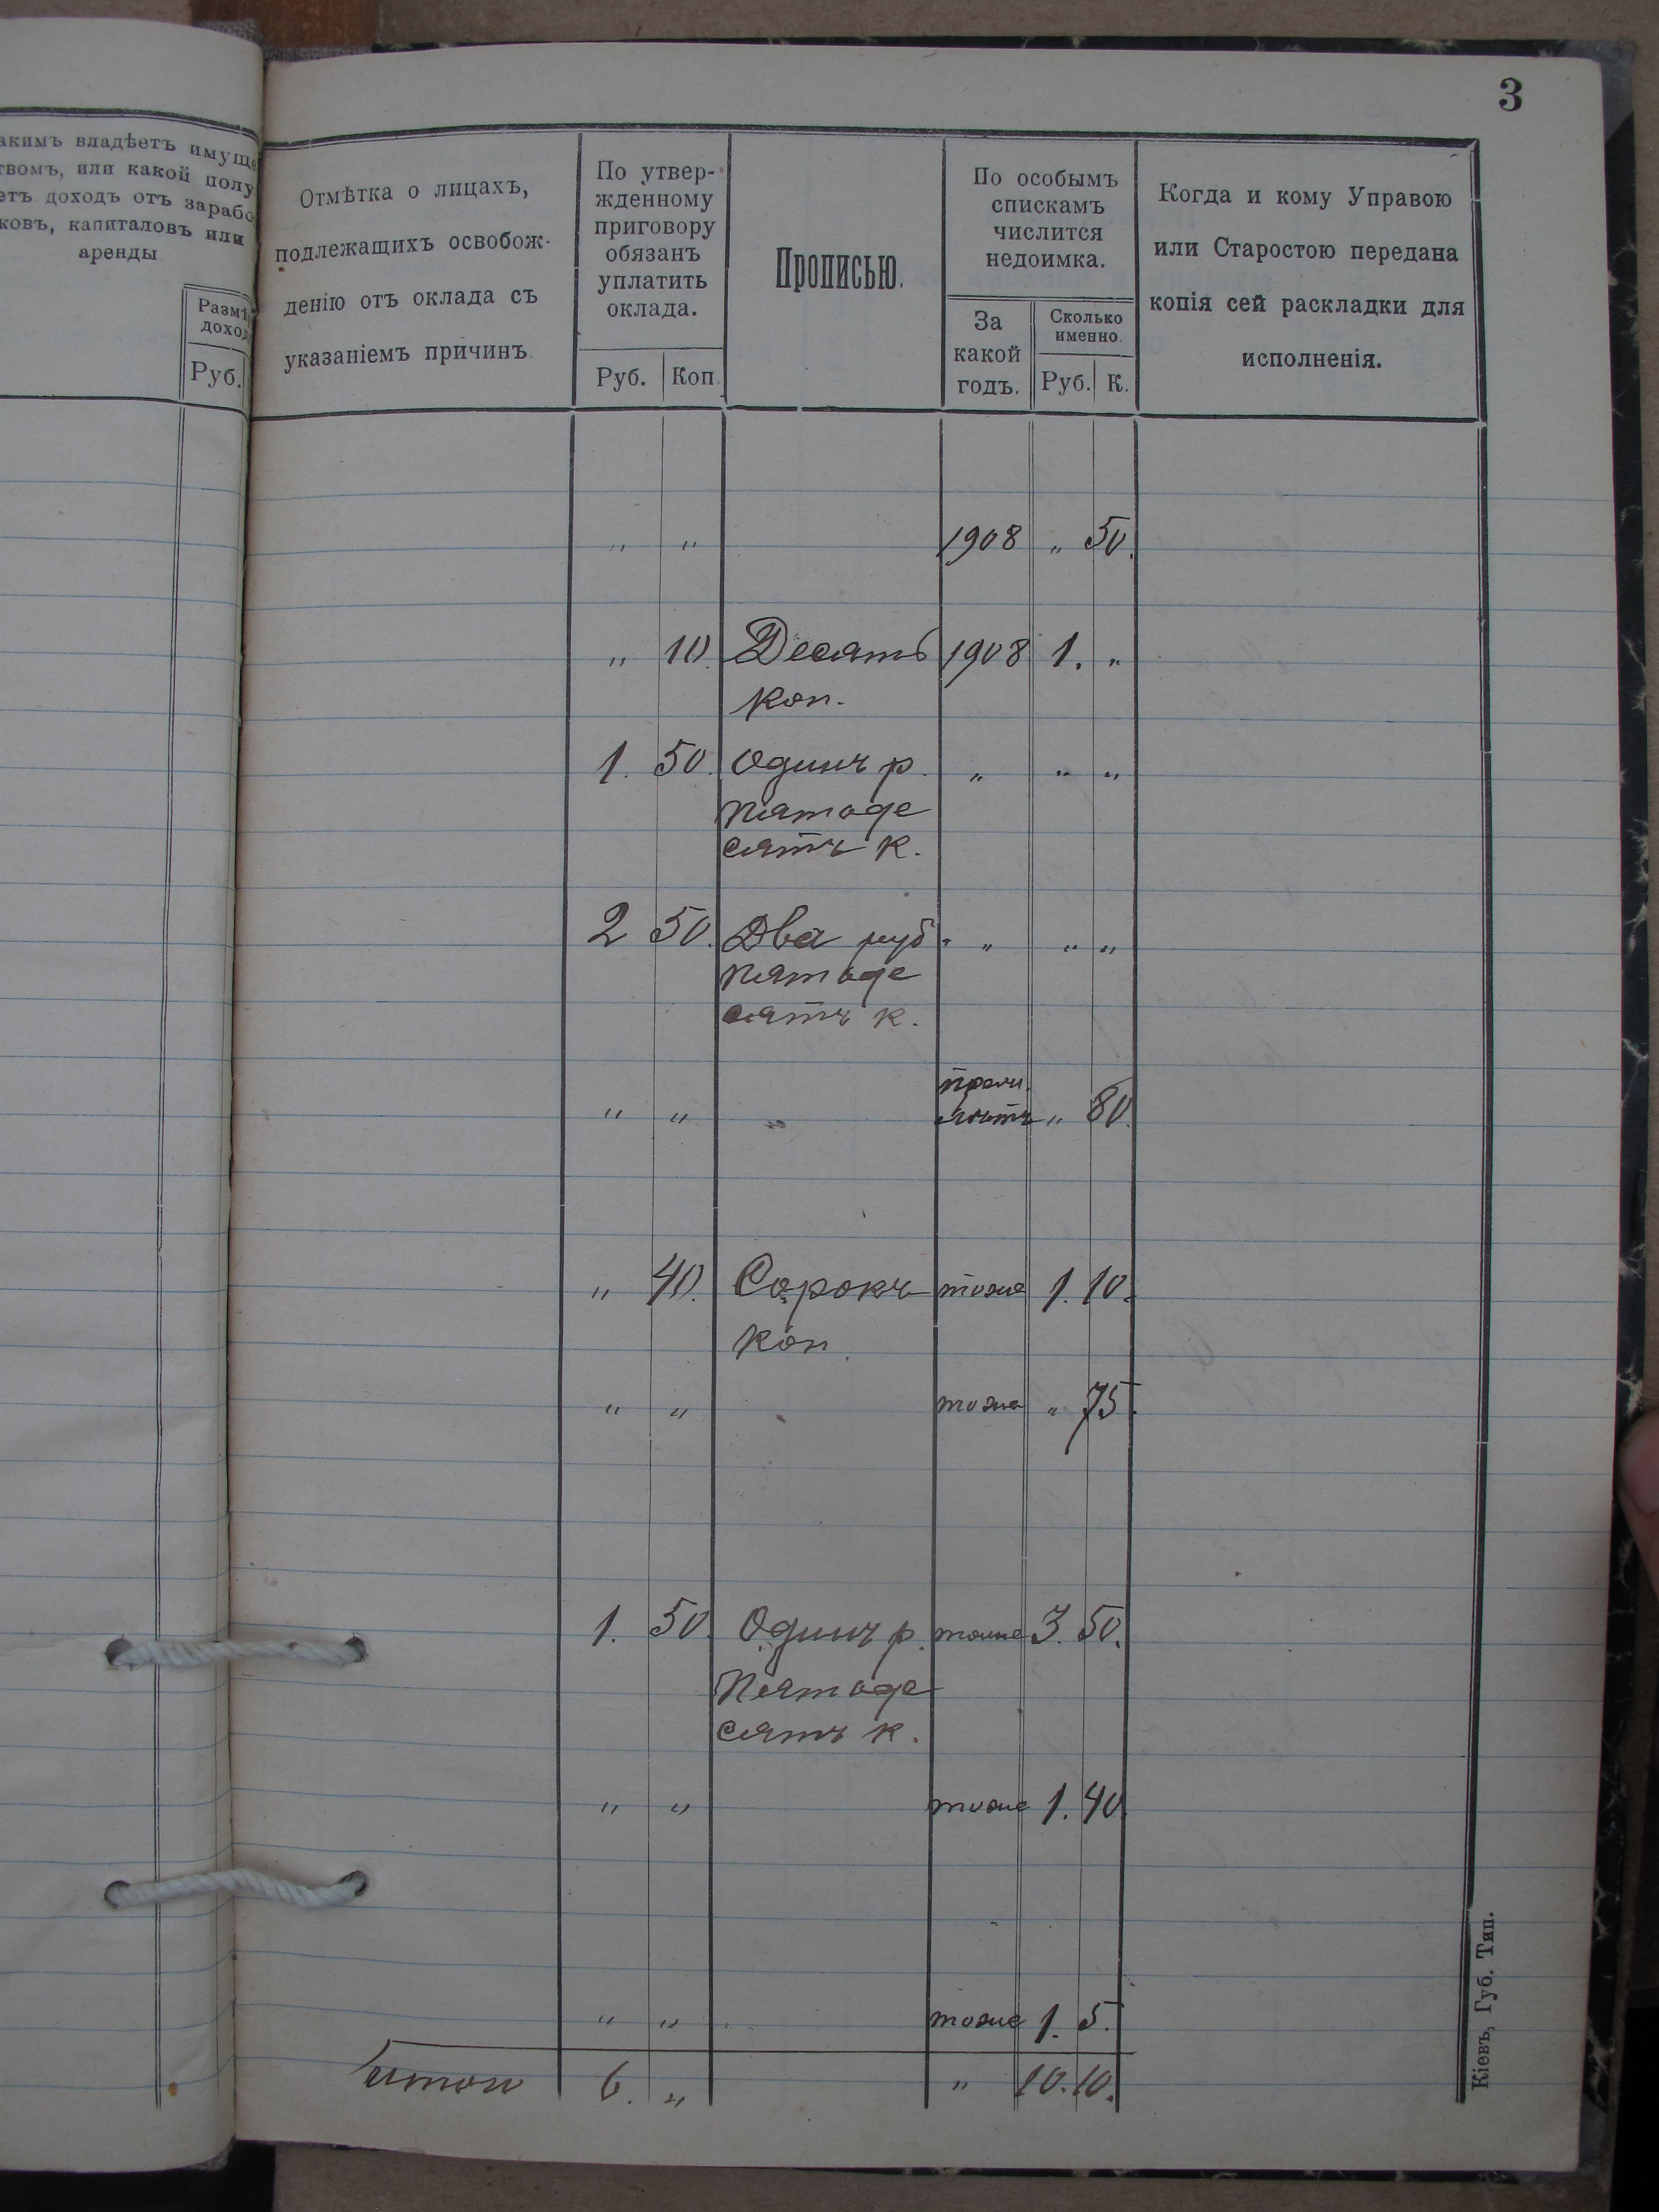 3
акимъ владѣетъ имуще
твомъ, или какой полу
етъ доходъ отъ зарабо
ковъ, капиталовъ или
аренды.
Размѣ
доход
Руб.
Отмѣтка о лицахъ,
подлежащихъ освобож-
денію отъ оклада съ
указаніемъ причинъ.
По утвер-
жденному
приговору
обязанъ
уплатить
оклада.
Руб. Коп.
Прописью.
По особымъ
спискамъ
числится
недоимка.
За
какой
годъ.
Сколько
именно.
Руб. К.
Когда и кому Управою
или Старостою передана
копія сей раскладки для
исполненія.
„ „ 1908 „ 50.
„ 10. Десять 1908 1. „
коп.
1. 50. Одинъ р. „ „ „
пятьде
сятъ к.
2 50. Два руб. „ „ „
пятьде
сятъ к.
„ „ „ 80.
„ 40. Сорокъ тоже 1. 10.
коп.
„ „ тоже „ 75.
1. 50. Одинъ р. тоже 3. 50.
Пятьде
сятъ к.
„ „ тоже 1. 40.
„ „ тоже 1. 5.
Итого 6. „ „ 10. 10.
Кіевъ, Губ. Тип.